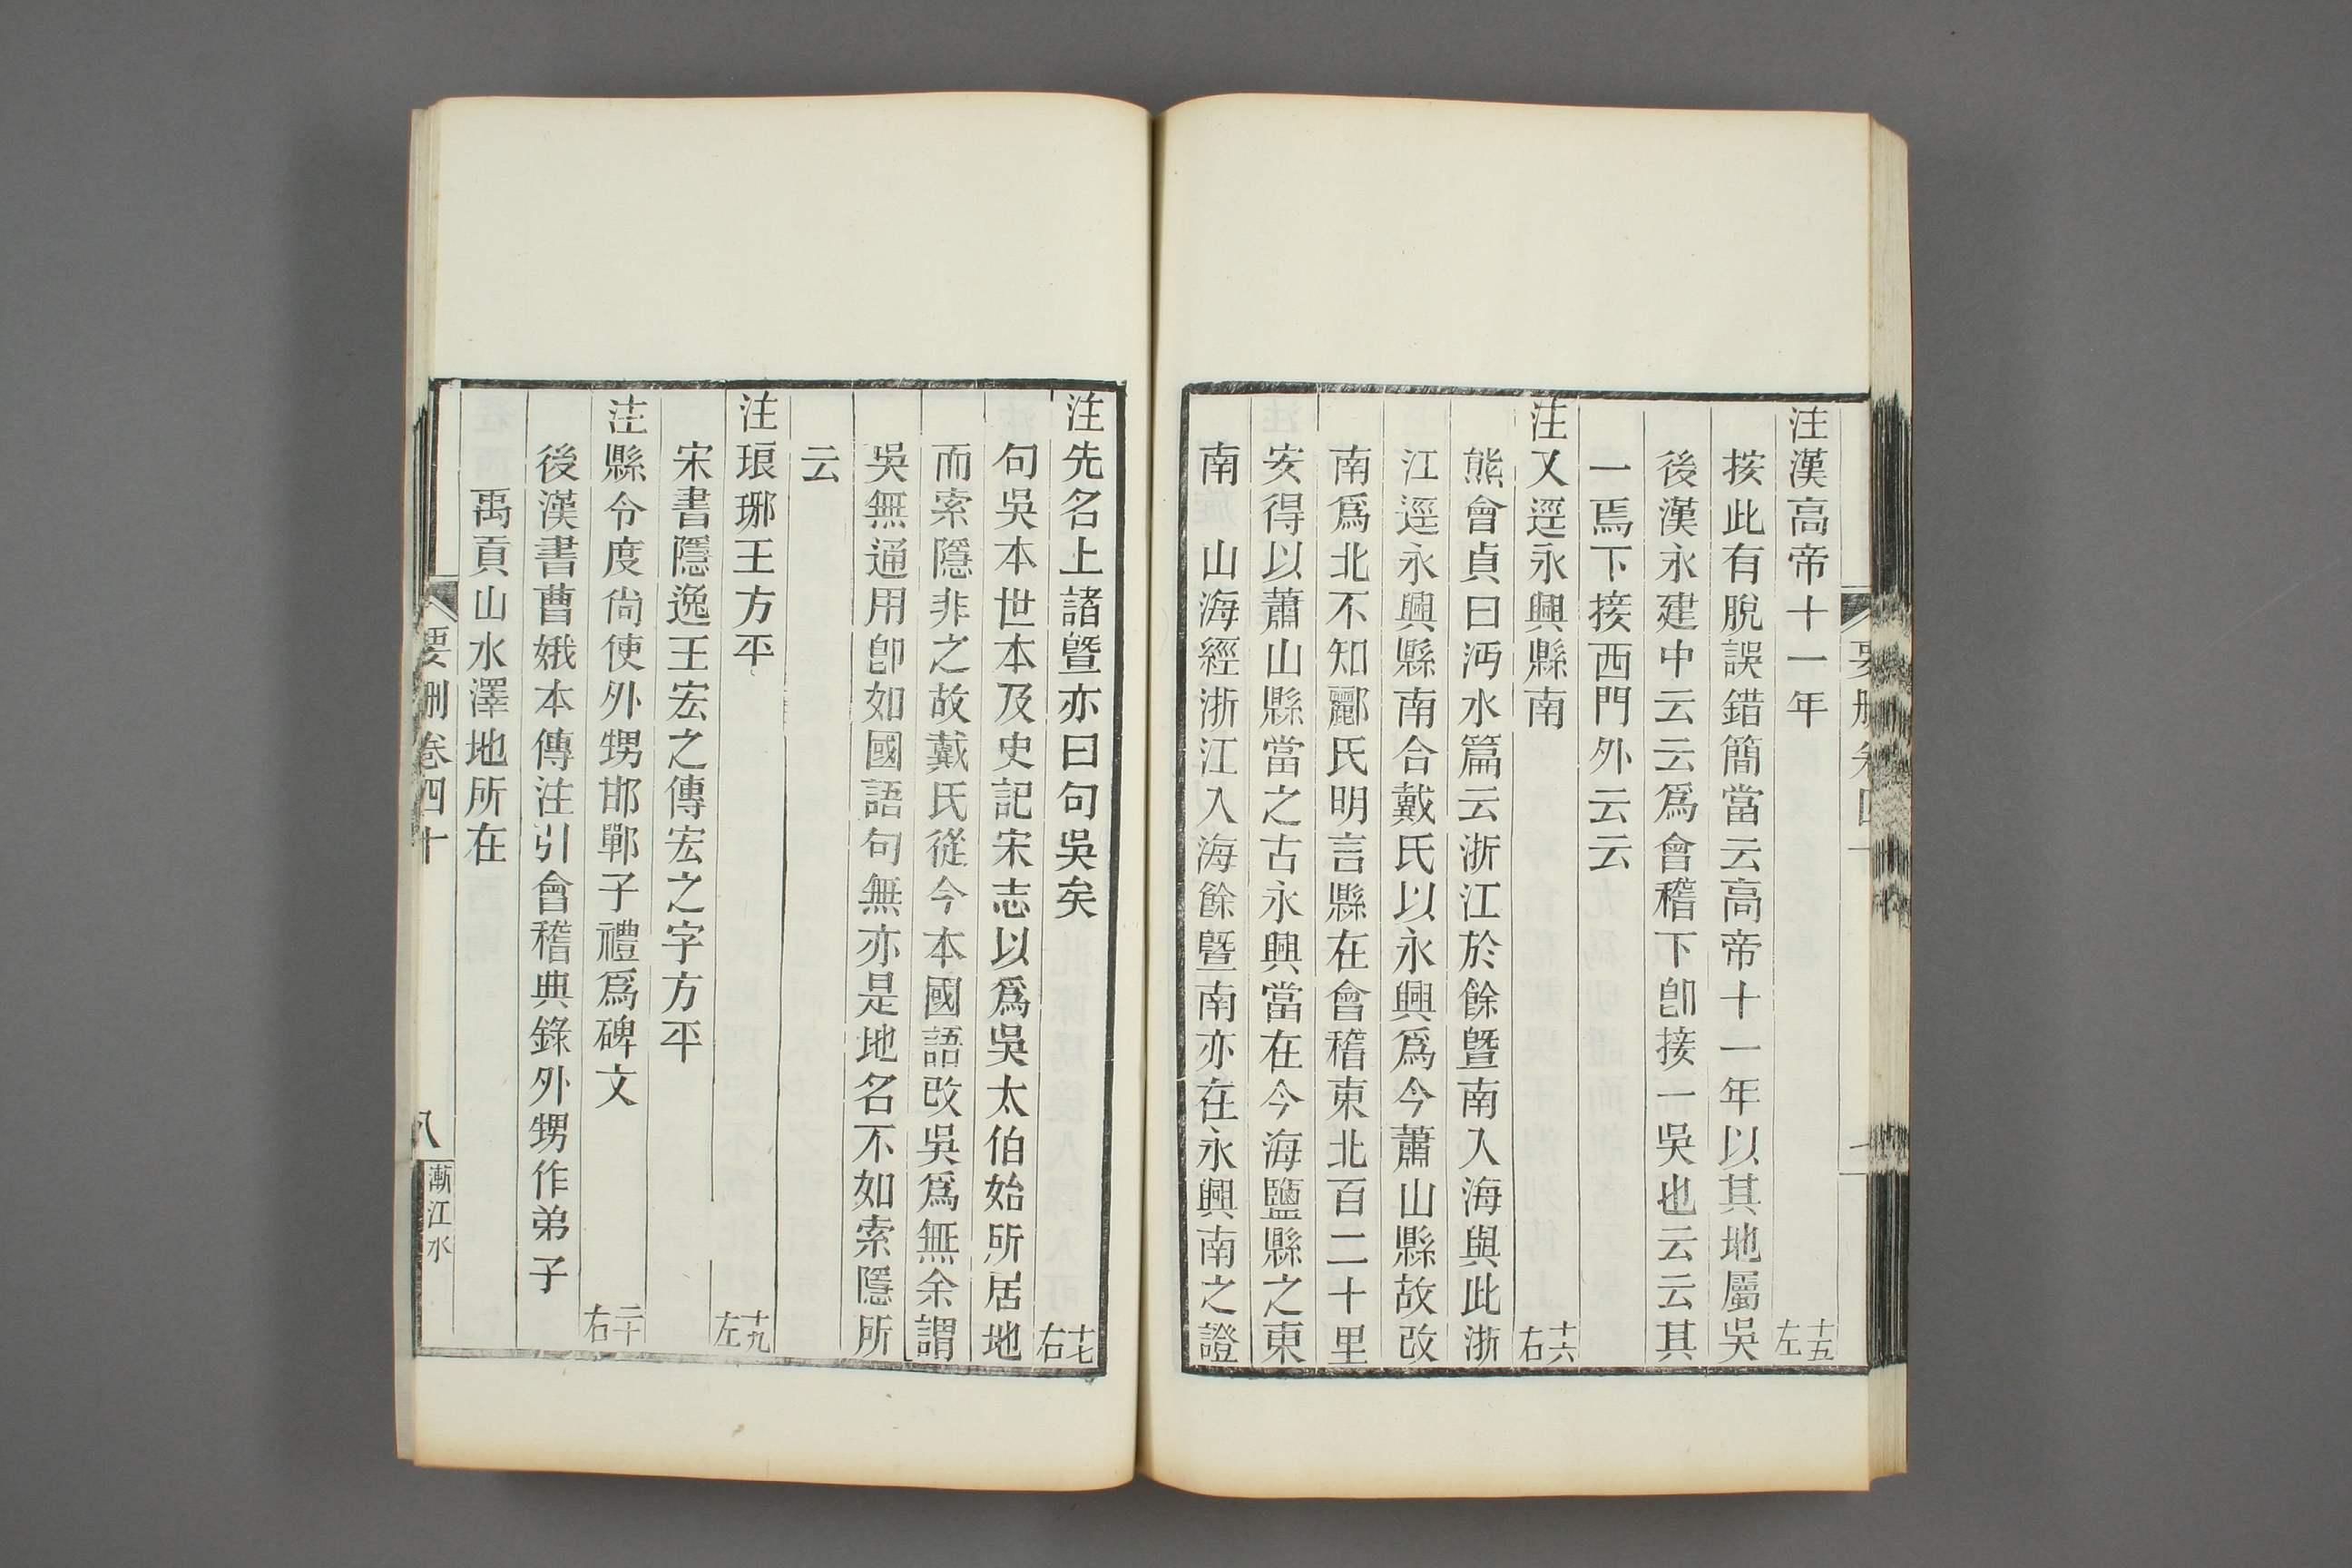 注漢高帝十一年 十五左
按此有脫誤錯簡當云高帝十一年以其地屬吳
後漢永建中云云爲會稽下卽接一吳也云云其
一焉下接西門外云云
注又逕永興縣南 十六右
熊會貞曰沔水篇云浙江於餘曁南入海與此浙
江逕永興縣南合戴氏以永興爲今蕭山縣故改
南爲北不知酈氏明言縣在會稽東北百二十里
安得以蕭山縣當之古永興當在今海鹽縣之東
南 山海經浙江入海餘曁南亦在永興南之證
注先名上諸曁亦曰句吳矣 十七右
句吳本世本及史記宋志以爲吳太伯始所居地
而索隱非之故戴氏從今本國語改吳爲無余謂
吳無通用卽如國語句無亦是地名不如索隱所
云
注琅琊王方平 十九左
宋書隱逸王宏之傳宏之字方平
注縣令度尙使外甥邯鄲子禮爲碑文 二十右
後漢書曹娥本傳注引會稽典錄外甥作弟子
禹貢山水澤地所在
要刪卷四十 八 漸江水